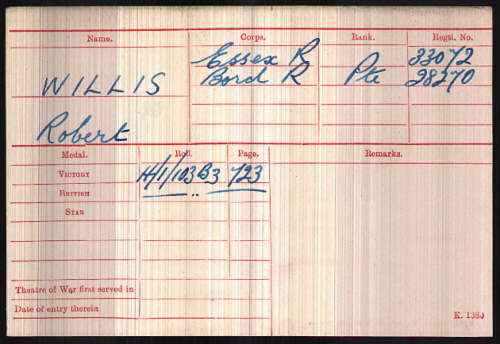 Name. Corps. Rank. Regtl. No.
Essex R 33072
WILLIS Bord R Pte 28270
Robert
Medal. Roll. Page. Remarks.
VICTORY H/1/103 B3 723
BRITISH " "
STAR
Theatre of War first served in
Date of entry therein
K. 1380